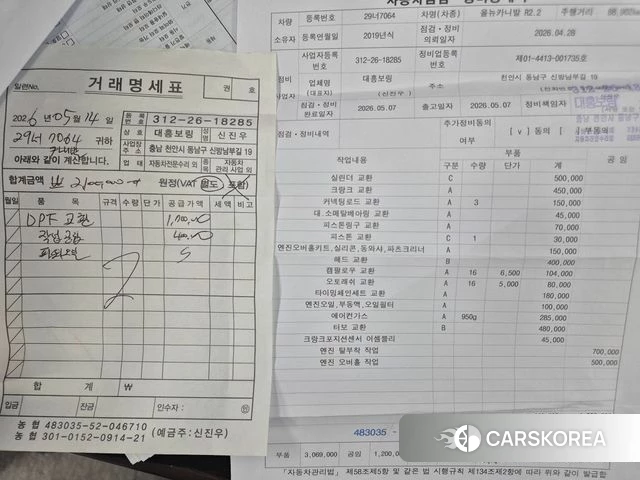 일련No.
거래명세표
권 호
2026년 05월 14일
등록번호 312-26-18285
29너 7064 귀하
상호 대흥보링 성명 신진우
사업장주소 충남 천안시 동남구 신방남부길 19
아래와 같이 계산합니다.
업태 자동차전문수리 외 종목 자동차관리 사업 외
합계금액 ₩ 2,100,000 원정(VAT 별도 포함)
월일 품목 규격 수량 단가 공급가액 세액 비고
DPF 교환 1,700,00
작업공임 400,00
합계 ₩
입금 잔금 인수자 : ㊞
농협 483035-52-046710
농협 301-0152-0914-21 (예금주:신진우)
차량 등록번호 29너7064 차명(차종) 올뉴카니발 R2.2 주행거리
소유자 등록연월일 2019년식 점검·정비 의뢰일자 2026.04.28
사업자등록번호 312-26-18285 정비업등록번호 제01-4413-001735호
정비 업체명 대흥보링 주소 천안시 동남구 신방남부길 19
사업자 (대표자) (신진우)
점검·정비 완료일자 2026.05.07 출고일자 2026.05.07 정비책임자
대흥보링
점검·정비내역 추가정비동의 여부 [ v ] 동의 [ ] 부동의
작업내용 부품 공임
구분 수량 단가 계
실린더 교환 C 500,000
크랑크 교환 A 450,000
커넥팅로드 교환 A 3 150,000
대.소메탈베아링 교환 A 45,000
피스톤링구 교환 A 70,000
피스톤 교환 C 1 30,000
엔진오버홀키트,실리콘,동와샤,파츠크리너 A 150,000
헤드 교환 B 400,000
캠팔로우 교환 A 16 6,500 104,000
오토래쉬 교환 A 16 5,000 80,000
타이밍체인세트 교환 A 180,000
엔진오일,부동액,오일필터 A 100,000
에어컨가스 A 950g 285,000
터보 교환 B 480,000
크랑크포지션센서 어셈블리 45,000
엔진 탈부착 작업 700,000
엔진 오버홀 작업 500,000
483035
부품 3,069,000 공임
「자동차관리법」 제58조제5항 및 같은 법 시행규칙 제134조제2항에 따라 위와 같이 발급합
CARSKOREA